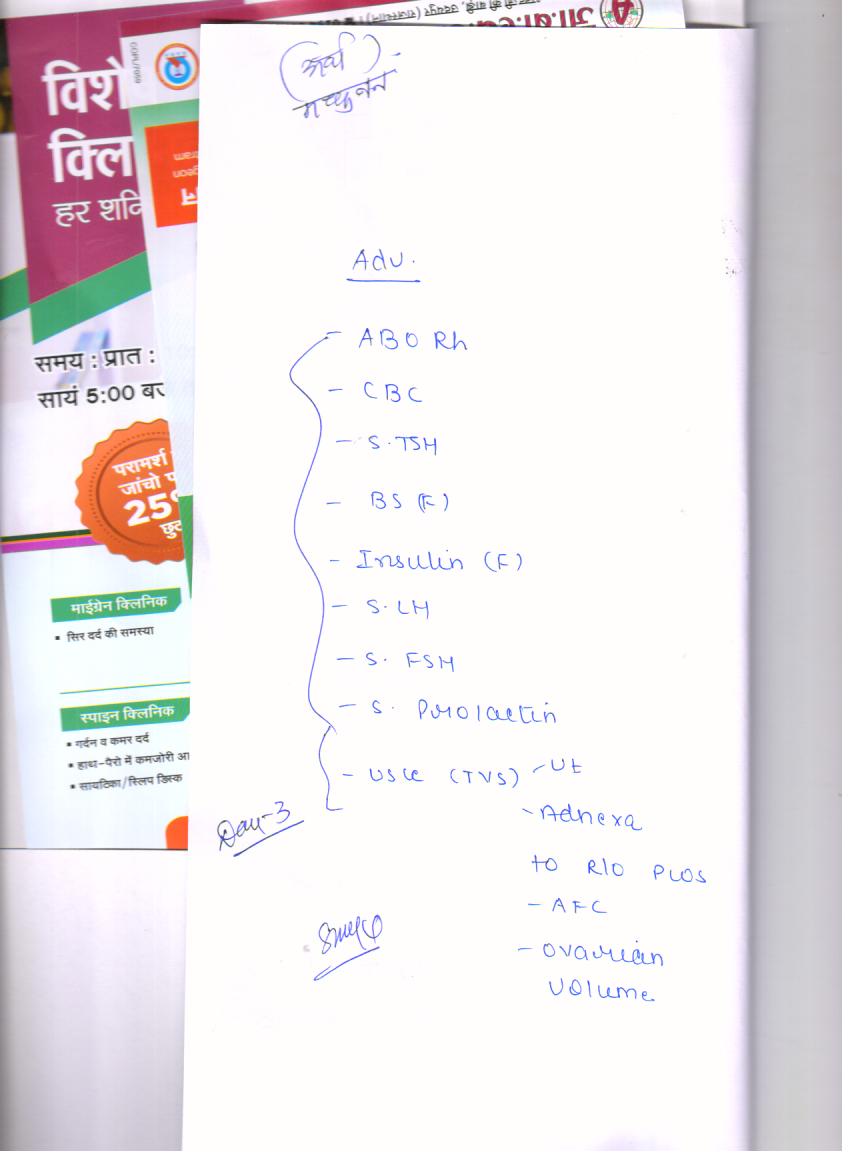 जी.बी.एच.
उदयपुर (राजस्थान)
COPL/7059
विशे
क्लि
हर शनि
समय : प्रात :
सायं 5:00 बज
परामर्श
जांचो प
25%
छुट
माईग्रेन क्लिनिक
▪ सिर दर्द की समस्या
स्पाइन क्लिनिक
▪ गर्दन व कमर दर्द
▪ हाथ-पैरो में कमजोरी आ
▪ सायटिका/स्लिप डिस्क
Adv.
- ABO Rh
- CBC
- S.TSH
- BS (F)
- Insulin (F)
- S.LH
- S. FSH
- S. Prolactin
- USG (TVS) - Ut
- Adnexa
to R/O PCOS
- AFC
- Ovarian
Volume
Day-3